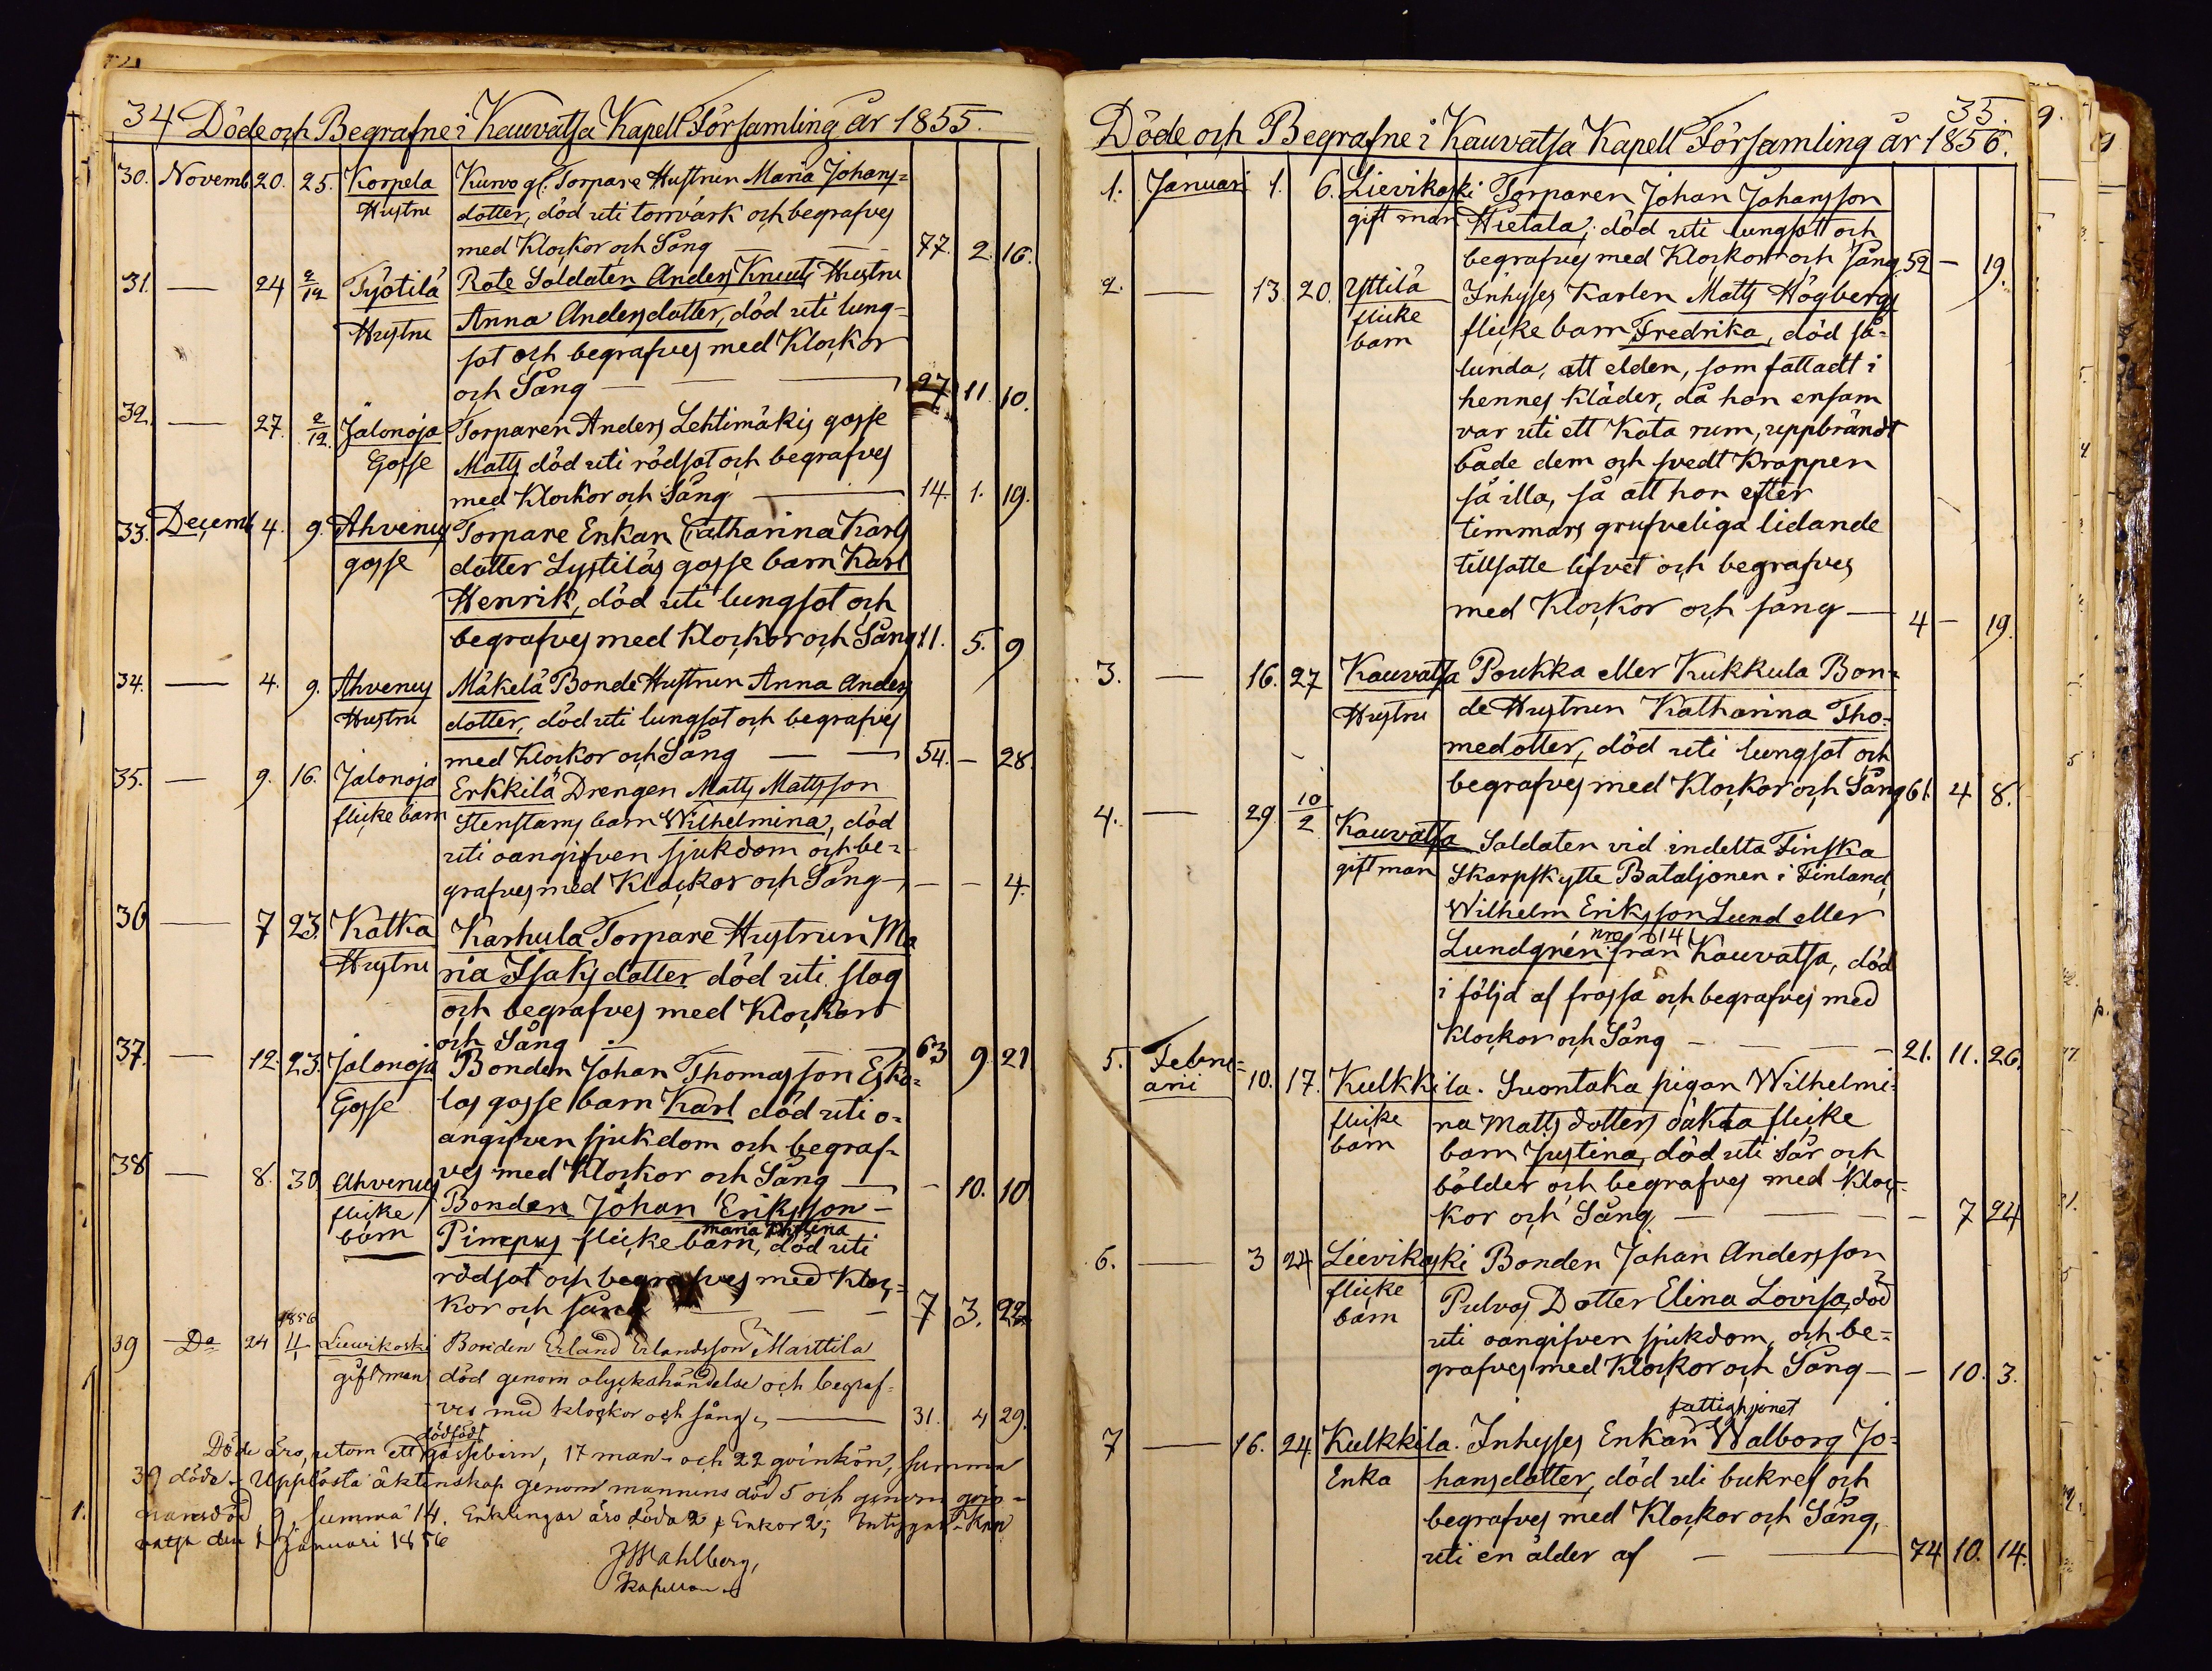 34 Döde och Begrafne i Kauvatsa Kapell Församling år 1855.
30. Novemb. 20. 25. Korpela Kurvo gl. Torpare Hustrun Maria Johans=
Hustru dotter, död uti torrvärk och begrafves
med Klockor och Sång — — 77. 2. 16.
31. — 24 2/12 Työtilä Rote Soldaten Anders Knuuts Hustru
Hustru Anna Andersdotter, död uti lung-
sot och begrafves med Klockor
och Sång — — — 27 11 10.
32. — 27. 2/12. Jalonoja Torparen Anders Lehtimäkis gosse
Gosse Matts död uti rödsot och begrafves
med Klockor och Sång — 14. 1. 19.
33. Decemb 4. 9. Ahvenus Torpare Enkan Catharina Karls
gosse dotter Lystiläs gosse barn Karl
Henrik, död uti lungsot och
begrafves med Klockor och Sång 11. 5. 9
34. — 4. 9. Ahvenus Mäkelä Bonde Hustrun Anna Anders
Hustru dotter, död uti lungsot och begrafves
med Klockor och Sång — — 54. — 28.
35. — 9. 16. Jalonoja Erkkilä Drengen Matts Mattsson
flicke barn Stenstams barn Wilhelmina, död
uti oangifven sjukdom och be=
grafves med Klockor och Sång — — — 4.
36 — 7 23. Katka Karhula Torpare Hustrun Ma
Hustru ria Isaks dotter död uti slag
och begrafves med Klockor
och Sång — 63 9. 21
37. — 12. 23. Jalonoja Bonden Johan Thomasson Esko=
Gosse las gosse barn Karl död uti o=
angifven sjukdom och begraf=
ves med Klockor och Sång — — 10. 10
38 — 8. 30. Ahvenus Bonden Johan Eriksson -
flicke barn Pimpus flicke barn, maria christina död uti
rödsot och begrafves med Kloc=
kor och sång — — — 7 3. 22
39 Do 24 1856 11/1 Lievikoski Bonden Erland Erlandsson Marttila
gift man död genom olyckshändelse och begraf-
ves med klockor och sång, — 31. 4 29.
Döde äro, utom ett dödfödt gossebarn, 17 man- och 22 qvinkön, summa
39 döde. Upplösta äktenskap genom mannens död 5 och genom qvin-
nansdöd 9, summa 14. Enklingar äro döda 2, Enkor 2; Intygar. Kau
vatsa den 1 Januari 1856
Wahlberg,
Kapellan
35.
Döde och Begrafne i Kauvatsa Kapell Församling år 1856.
1. Januari 1. 6. Lievikoski Torparen Johan Johansson
gift man Hietala, död uti lungsot och
begrafves med Klockor och Sång 52 — 19.
2. — 13. 20. Yttilä Inhyses Karlen Matts Högbergs
flicke barn flicke barn Fredrika, död så=
lunda, att elden, som fattadt i
hennes kläder, då hon ensam
var uti ett Kota rum, uppbrändt
både dem och svedt kroppen
så illa, så att hon efter
timmars grufveliga lidande
tillsatte lifvet och begrafves
med Klockor och sång — 4 — 19.
3. — 16. 27 Kauvatsa Poukka eller Kukkula Bon=
Hustru de Hustrun Katharina Tho=
medotter, död uti lungsot och
begrafves med Klockor och Sång 61. 4 8.
4. — 29 10/2 Kauvatsa Soldaten vid indelta Finska
gift man Skarpskytte Bataljonen i Finland,
Wilhelm Eriksson Lund eller
Lundgrén nro 14 från Kauvatsa, död
i följd af frossa och begrafves med
Klockor och Sång — — — 21. 11. 26.
5. Febru=
arii 10. 17. Kulkkila. Suontaka pigan Wilhelmi=
flicke barn na Matts dotters oäkta flicke
barn Justina, död uti Sår och
bölder och begrafves med Kloc=
kor och Sång — — — — 7 24
6. — 3 24 Lievikoski Bonden Johan Andersson
flicke barn Pulvas Dotter Elina Lovisa, död
uti oangifven sjukdom, och be=
grafves med Klockor och Sång — — 10. 3.
7 — 16. 24 Kulkkila. Inhyses Enkan fattighjonet Walborg Jo=
Enka hansdotter, död uti bukref och
begrafves med Klockor och Sång,
uti en ålder af — — 74 10. 14.